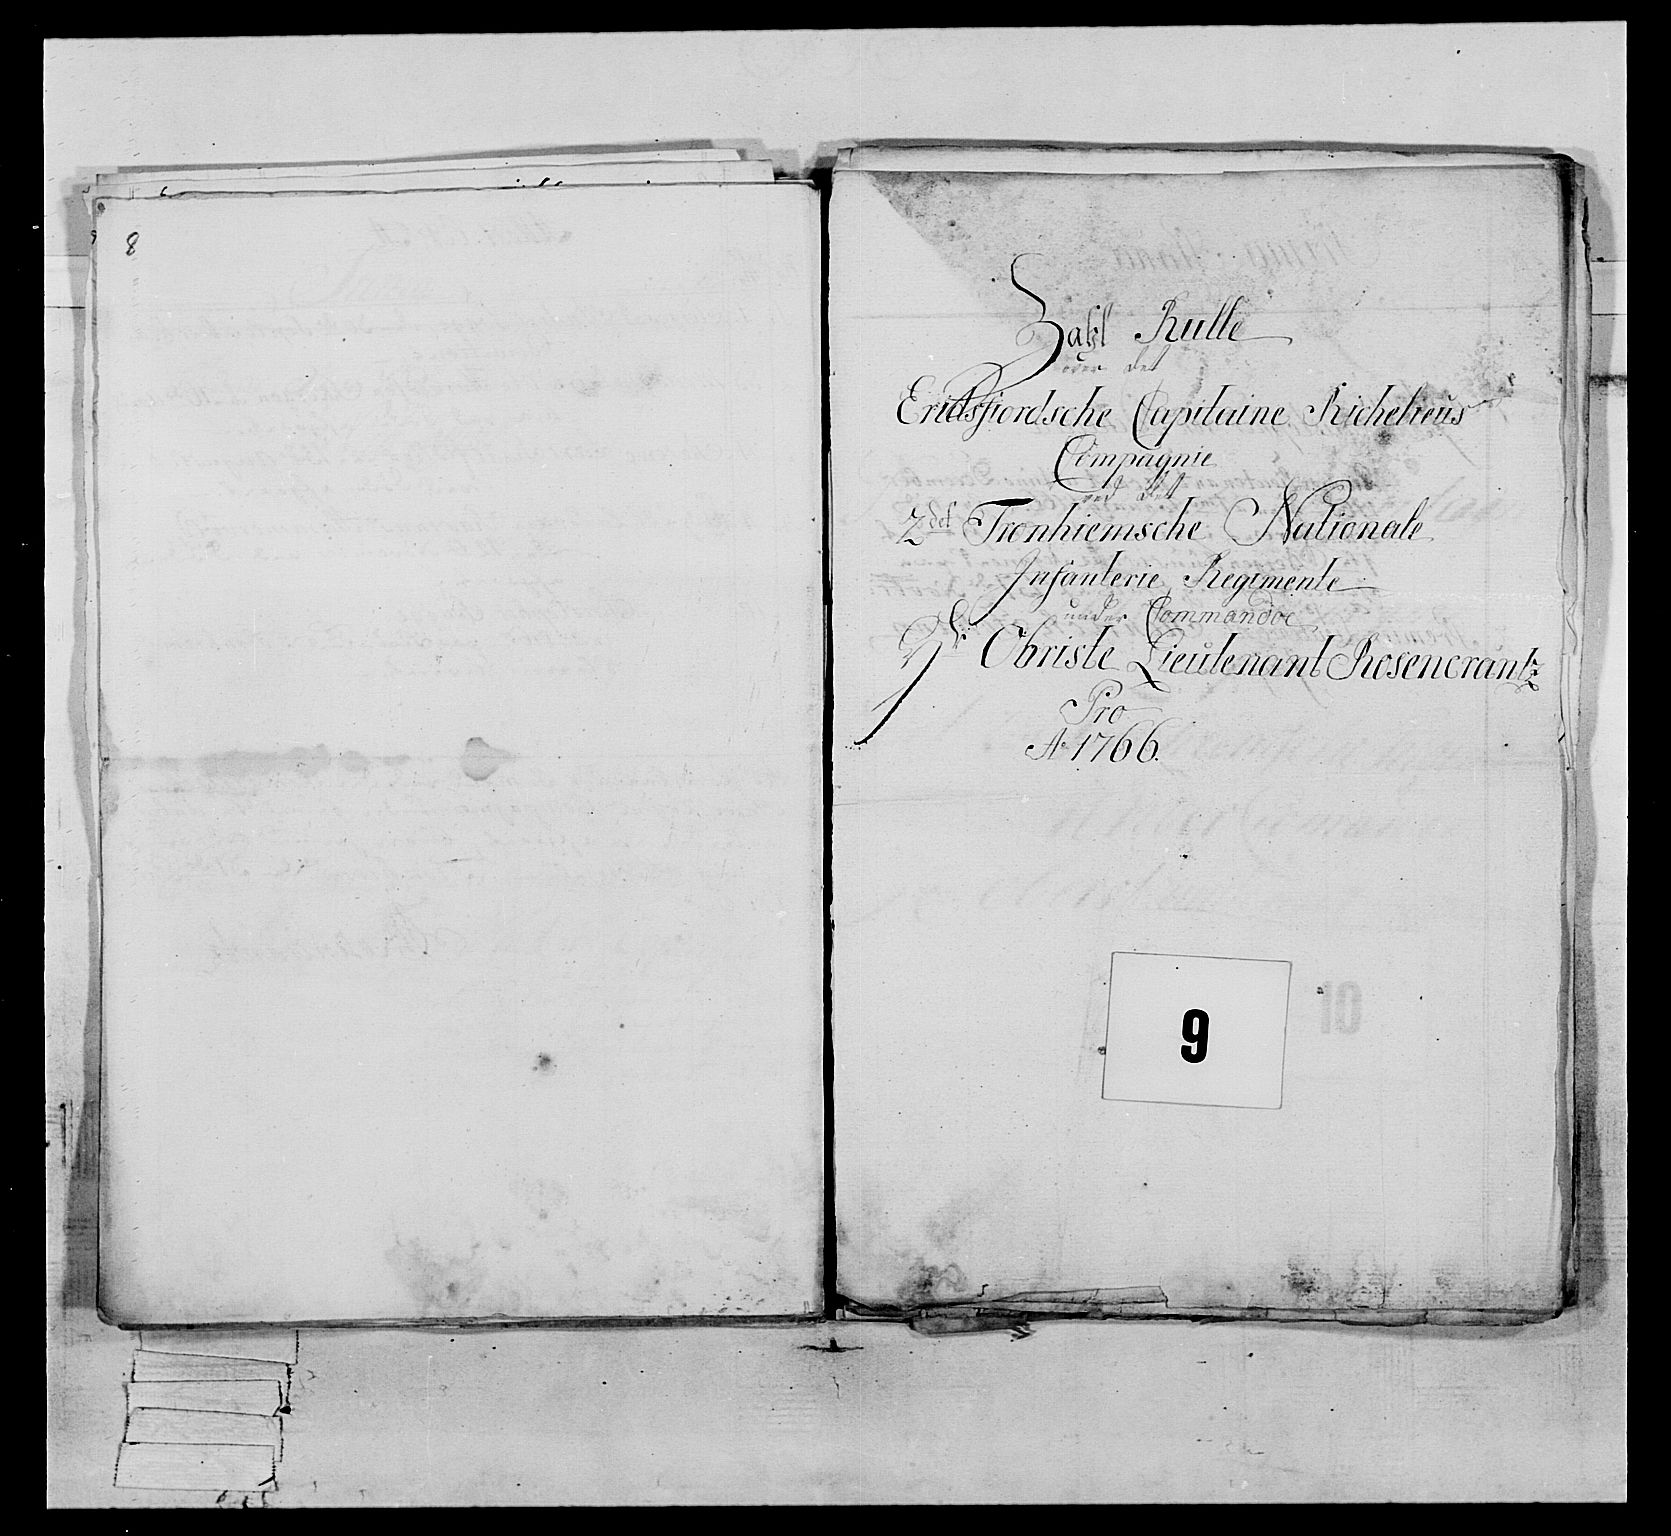 8
Zahl Rulle
over det
Eridsfiordsche Capitaine Richelieus
Compagnie
ved det
2det Tronhiemsche Nationale
Infanterie Regimente
under Commando
Hr Obriste Lieutenant Rosencrantz
Pro
Ao 1766.
9
10